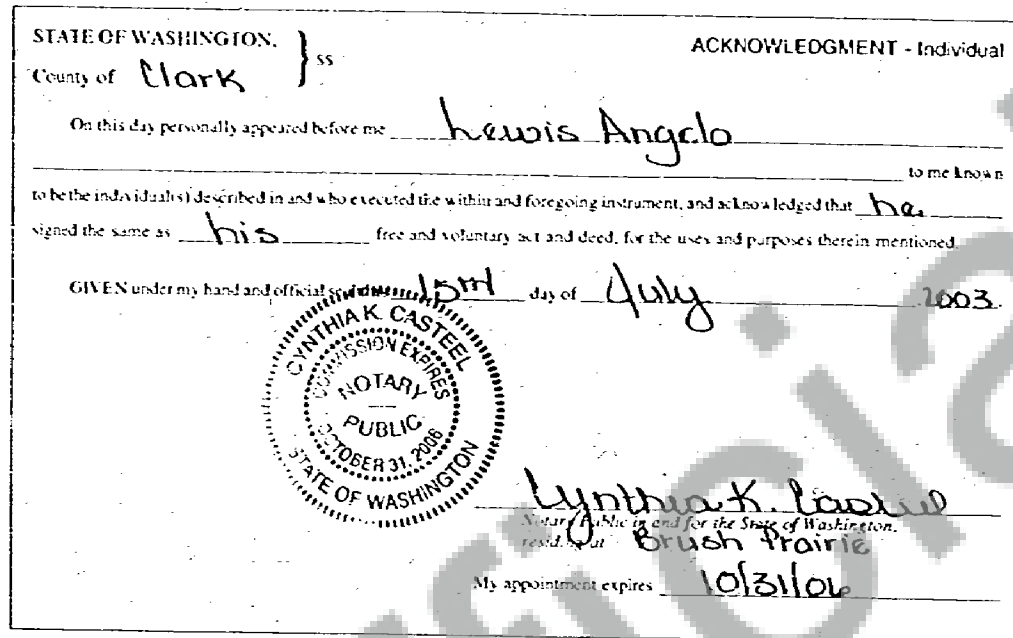 STATE OF WASHINGTON, } ss
ACKNOWLEDGMENT - Individual
County of Clark
On this day personally appeared before me Lewis Angelo
to me known
to be the individual(s) described in and who executed the within and foregoing instrument, and acknowledged that he
signed the same as his free and voluntary act and deed, for the uses and purposes therein mentioned.
GIVEN under my hand and official 15th day of July 2003.
CYNTHIA K. CASTEEL
COMMISSION EXPIRES
NOTARY
PUBLIC
OCTOBER 31, 2006
STATE OF WASHINGTON
Cynthia K. Casteel
Notary Public in and for the State of Washington,
residing at Brush Prairie
My appointment expires 10/31/06